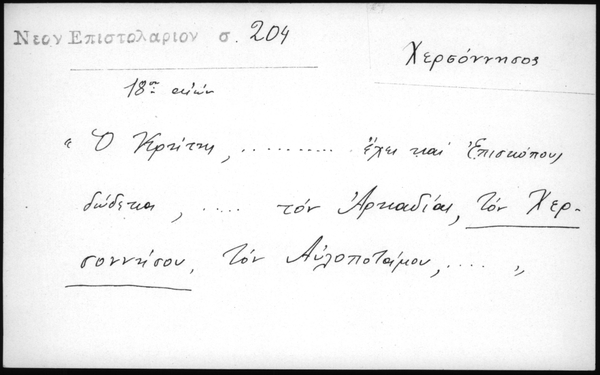 Νεον Επιστολαριον σ. 204
Χερσόννησος
18ος αιών
"Ὁ Κρήτης, ........... ἔχει καὶ Ἐπισκόπους
δώδεκα, ..... τὸν Ἀρκαδίας, τὸν Χερ-
σοννήσου, τὸν Αὐλοποτάμου, ..... "